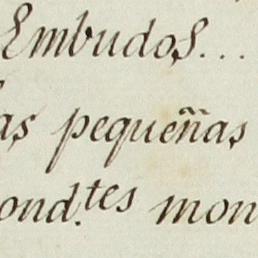 Embudos...
as pequeñas
ond.tes mon